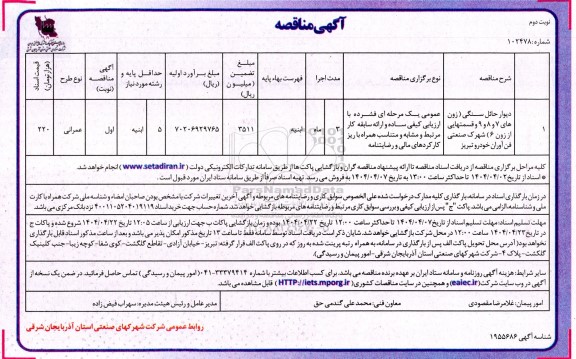 نوبت دوم
آگهی مناقصه
شماره: ۱۰۲۴۷۸
شرح مناقصه
نوع برگزاری مناقصه
مدت اجرا
فهرست بهاء پایه
مبلغ تضمین (میلیون ریال)
مبلغ برآورد اولیه (ریال)
حداقل پایه و رشته مورد نیاز
آگهی مناقصه (نوبت)
نوع طرح
قیمت اسناد (هزار تومان)
۱
دیوار حائل سنگی (زون های ۷ و ۸ و ۹ و قسمتهایی از زون ۶) شهرک صنعتی فن آوران خودرو تبریز
عمومی یک مرحله ای فشرده با ارزیابی کیفی ساده و ارائه سابقه کار مرتبط و مشابه و متناسب همراه با ریز کارکردهای مالی و رضایتنامه
۳
ماه
ابنیه
۳۵۱۱
۷۰۲۰۶۹۲۹۷۶۵
۵
ابنیه
اول
عمرانی
۲۲۰
کلیه مراحل برگزاری مناقصه از دریافت اسناد مناقصه تا ارائه پیشنهاد مناقصه گران و بازگشایی پاکت ها از طریق سامانه تدارکات الکترونیکی دولت (www.setadiran.ir) انجام خواهد شد.
* اسناد از تاریخ ۱۴۰۴/۰۴/۰۲ تا حداکثر ساعت ۱۳:۰۰ به تاریخ ۱۴۰۴/۰۴/۰۷ به فروش می رسد. تهیه اسناد صرفاً از طریق سامانه ستاد ایران مورد قبول است.
در زمان بارگذاری اسناد در سامانه، بارگذاری کلیه مدارک درخواست شده علی الخصوص سوابق کاری و رضایتنامه های مربوطه و آگهی آخرین تغییرات شرکت با مشخص بودن صاحبان امضاء و شناسه ملی شرکت همراه با کارت ملی و شناسنامه الزامی می باشد. پاکت "ج" پس از ارزیابی کیفی و بررسی سوابق کاری مرتبط و رضایتنامه های مربوطه بازگشایی خواهد شد.
سایر شرایط: هزینه آگهی روزنامه و سامانه ستاد ایران بر عهده برنده مناقصه می باشد. برای کسب اطلاعات بیشتر با شماره ۳۳۳۷۹۴۱۴-۰۴۱ (امور پیمان و رسیدگی) تماس حاصل فرمائید. در ضمن یک نسخه از آگهی در وب سایت شرکت (eaiec.ir) و همچنین در سایت مناقصات کشوری (HTTP://iets.mporg.ir) قابل مشاهده می باشد.
امور پیمان: غلامرضا مقصودی
معاون فنی: محمد علی گندمی حق
مدیر عامل و رئیس هیئت مدیره: سهراب فیض زاده
روابط عمومی شرکت شهرکهای صنعتی استان آذربایجان شرقی
شناسه آگهی ۱۹۵۵۶۸۶